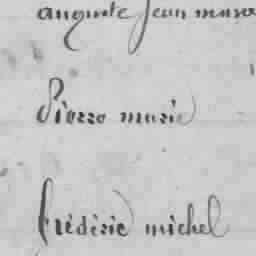 auguste Jean marie
Pierre marie
frédéric michel